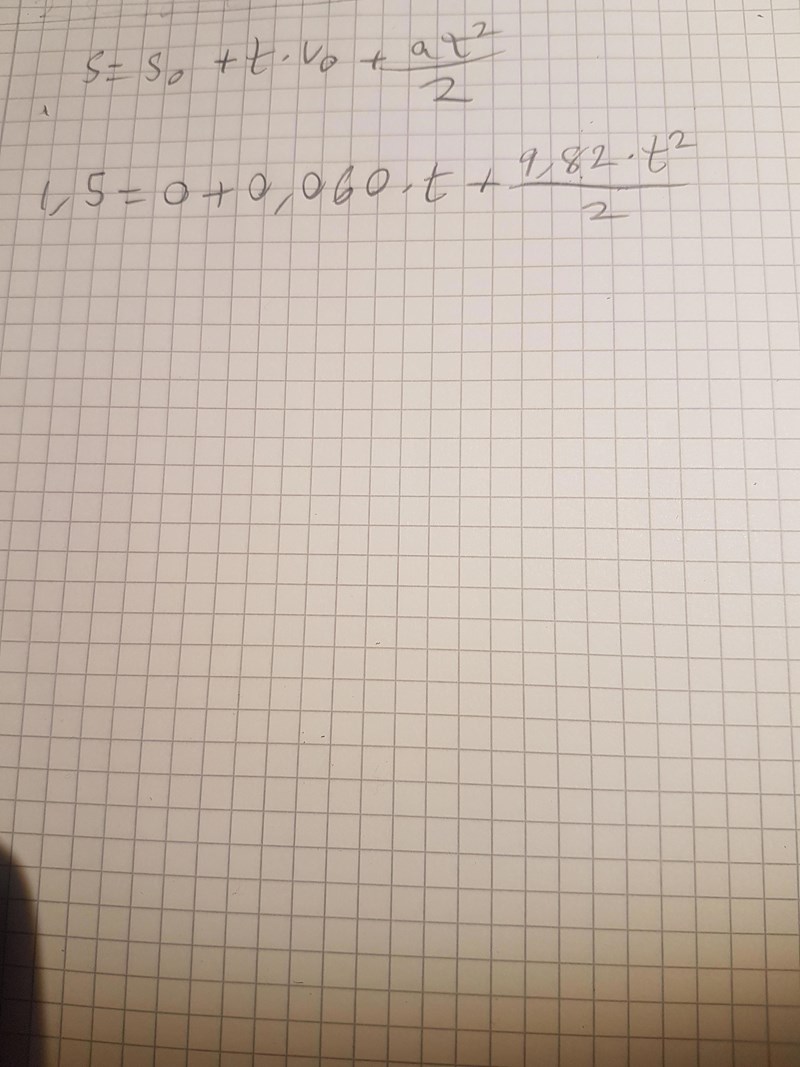 s = s₀ + t · v₀ + at²/2
1,5 = 0 + 0,060 · t + 9,82 · t²/2